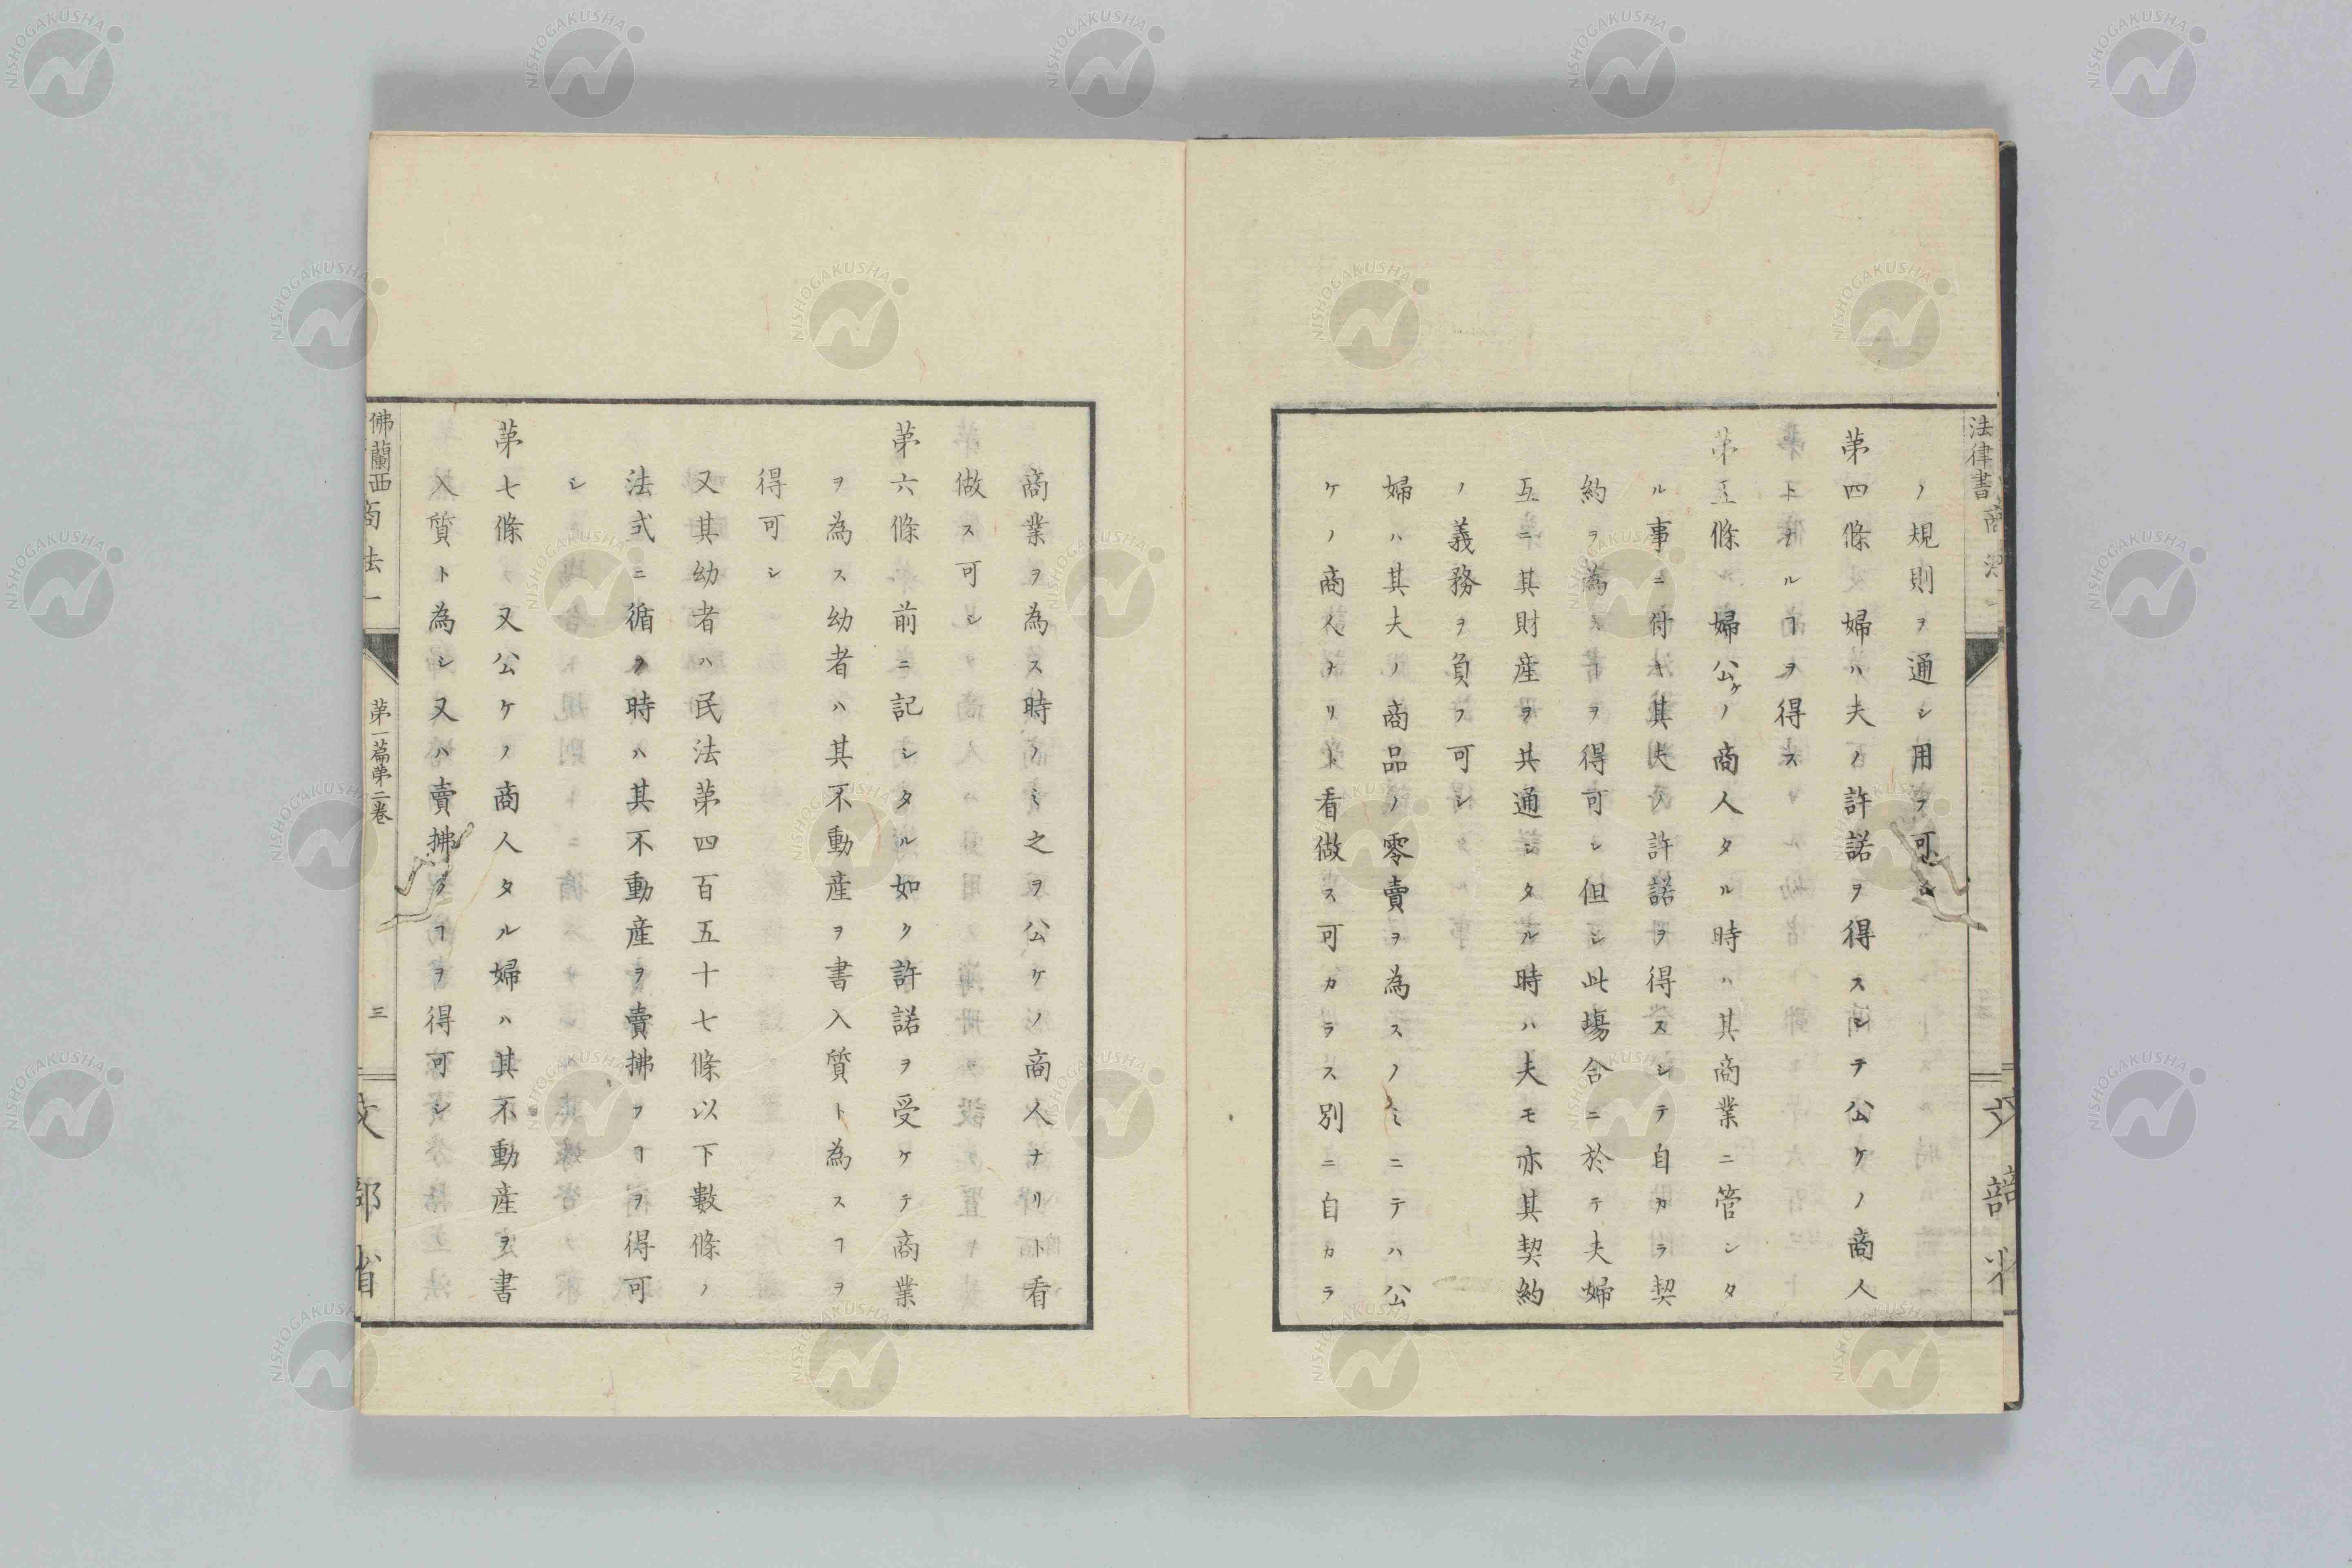 法律書
ノ規則ヲ通シ用フ可シ
第四條 婦ハ夫ノ許諾ヲ得スシテ公ケノ商人
トナルヿヲ得ス
第五條 婦公ケノ商人タル時ハ其商業ニ管シタ
ル事ニ付キ其夫ノ許諾ヲ得スシテ自カラ契
約ヲ為スヿヲ得可シ但シ此塲合ニ於テ夫婦
互ニ其財産ヲ共通シタル時ハ夫モ亦其契約
ノ義務ヲ負フ可シ
婦ハ其夫ノ商品ノ零賣ヲ為スノミニテハ公
ケノ商人ナリト看做ス可カラス別ニ自カラ
商業ヲ為ス時ノミ之ヲ公ケノ商人ナリト看
做ス可シ
第六條 前ニ記シタル如ク許諾ヲ受ケテ商業
ヲ為ス幼者ハ其不動産ヲ書入質ト為スヿヲ
得可シ
又其幼者ハ民法第四百五十七條以下數條ノ
法式ニ循フ時ハ其不動産ヲ賣拂フヿヲ得可
シ
第七條 又公ケノ商人タル婦ハ其不動産ヲ書
入質ト為シ又ハ賣拂フヿヲ得可シ
佛蘭西商法一
第一篇第二卷
三
文部省
NISHOGAKUSHA